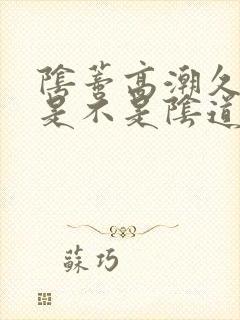 陰蒂高潮久
是不是陰道
蘇巧